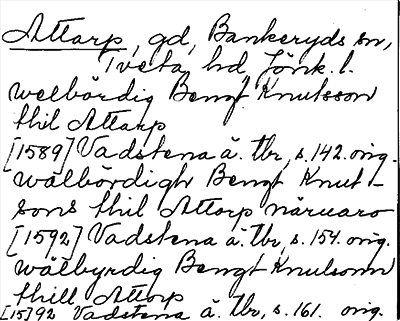 Attarp, gd, Bankeryds sn,
Tveta hd, Jönk. l.
welbördig Bengt Knutsson
thil Attarp
[1589] Vadstena ä. tbr, s. 142. orig.
wälbördigh Bengt Knut-
sons thil Attarp näruaro
[1592] Vadstena ä. tbr, s. 154. orig.
wälbyrdig Bengt Knutsonn
thill Attarp
[15]92 Vadstena ä. tbr, s. 161. orig.